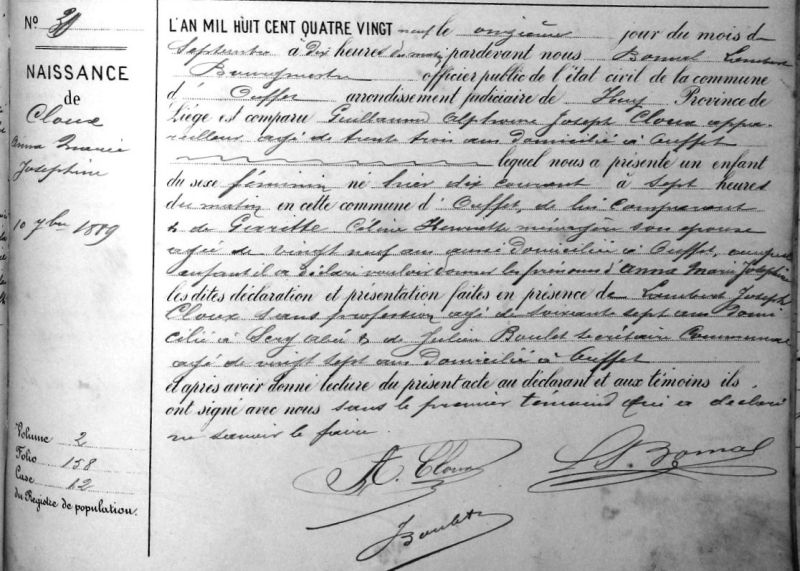 N° 31
NAISSANCE
de
Cloux
Anna Marie
Joséphine
10 7bre 1889
Volume 2
Folio 158
Case 12
du Registre de population.
L'AN MIL HUIT CENT QUATRE VINGT neuf le onzième jour du mois de
Septembre à dix heures du matin pardevant nous Bomal Lambert
Bourgmestre officier public de l'état civil de la commune
d' Ouffet arrondissement judiciaire de Huy Province de
Liége est comparu Guillaume Alphonse Joseph Cloux appa-
reilleur agé de trente trois ans domicilié à Ouffet
lequel nous a présenté un enfant
du sexe féminin né hier dix courant à sept heures
du matin en cette commune d' Ouffet, de lui Comparant
& de Céline Henriette ménagère son épouse
agée de vingt neuf ans aussi domiciliée à Ouffet, auquel
enfant il a déclaré vouloir donner les prénoms d'Anna Marie Joséphine
les dites déclaration et présentation faites en présence de Lambert Joseph
Cloux sans profession agé de soixante sept ans domi
cilié à & de Julien Boulet secrétaire Communal
agé de vingt sept ans domicilié à Ouffet
et après avoir donné lecture du présent acte au déclarant et aux témoins ils
ont signé avec nous sans le premier témoind qui a déclaré
ne savoir le faire.
A. Cloux
L. J. Bomal
J Boulet